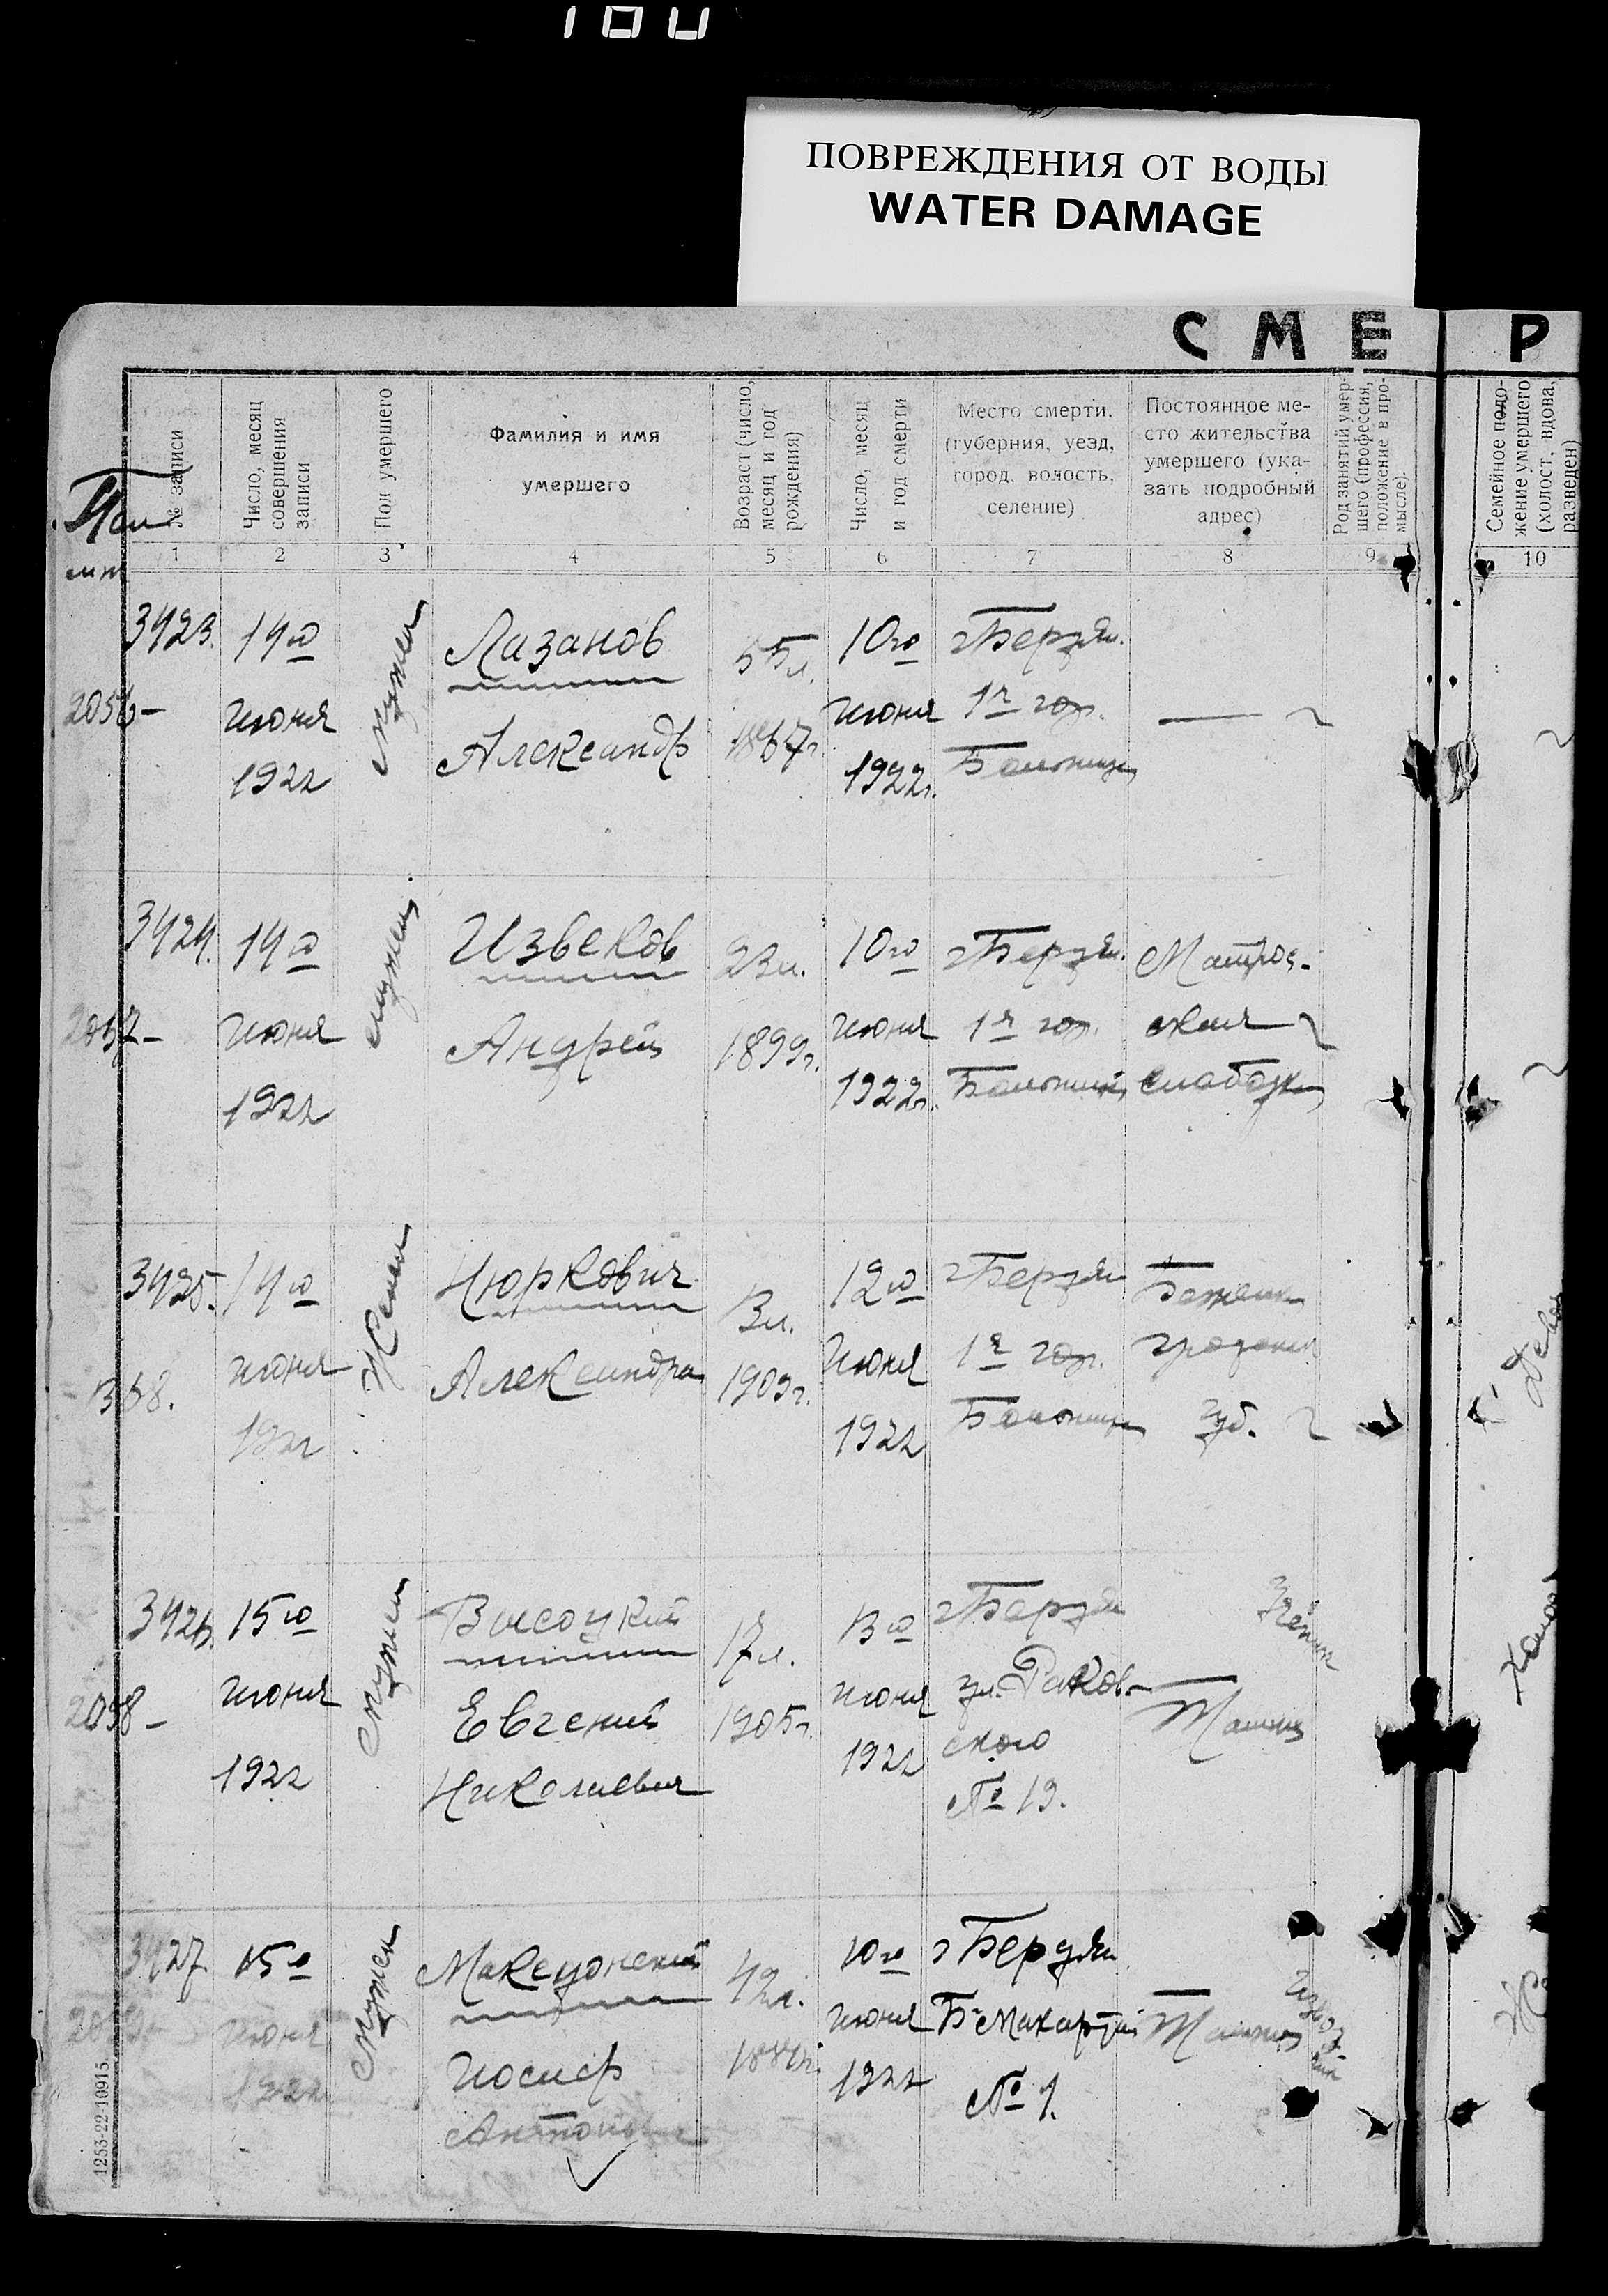 100
ПОВРЕЖДЕНИЯ ОТ ВОДЫ
WATER DAMAGE
СМЕ Р
№ записи
Число, месяц
совершения
записи
Пол умершего
Фамилия и имя
умершего
Возраст (число,
месяц и год
рождения)
Число, месяц
и год смерти
Место смерти.
(губерния, уезд,
город, волость,
селение)
Постоянное ме-
сто жительства
умершего (ука-
зать подробный
адрес)
Род занятий умер-
шего (профессия,
положение в про-
мысле).
Семейное поло-
жение умершего
(холост, вдова,
разведен)
1 2 3 4 5 6 7 8 9 10
3423.
2056-
14го
июня
1922
мужск
Лазанов
Александр
55л.
1867г
10го
июня
1922г.
г Бердян.
1я гор.
Больница
3424.
2057-
14го
июня
1922
мужск
Извеков
Андрей
23л.
1899г.
10го
июня
1922г.
г Бердян.
1я гор.
Больница
Матрос-
ская
Слободка
3425.
1368.
14го
июня
1922
Женск
Нюркович
Александра
13л.
1909г.
12го
июня
1922
г Бердян
1я гор.
Больница
губ.
3426.
2058-
15го
июня
1922
мужск
Высоцкий
Евгений
Николаевич
17л.
1905г.
13го
июня
1922
г Бердян
ул. Раков-
ского
№ 19.
3427
15го
июня
1922
мужск
Македонский
Иосиф
42л.
10го
июня
1922
г Бердян
№ 1.
1253-22-10915.